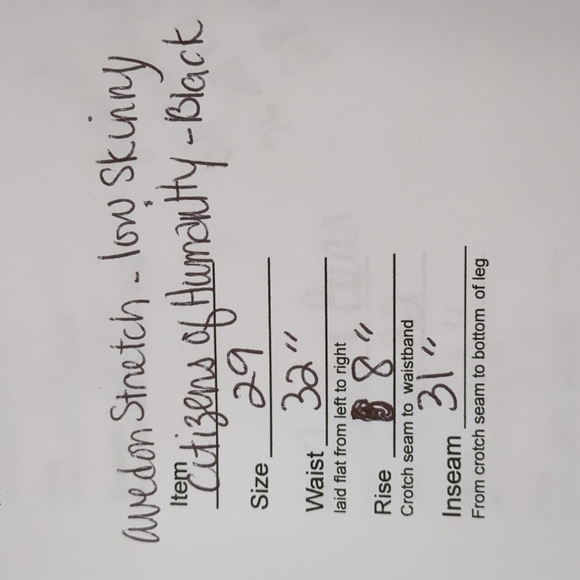 avedon Stretch - low Skinny
Item Citizens of Humanity - Black
Size 29
Waist 32"
laid flat from left to right
Rise 8"
Crotch seam to waistband
Inseam 31"
From crotch seam to bottom of leg